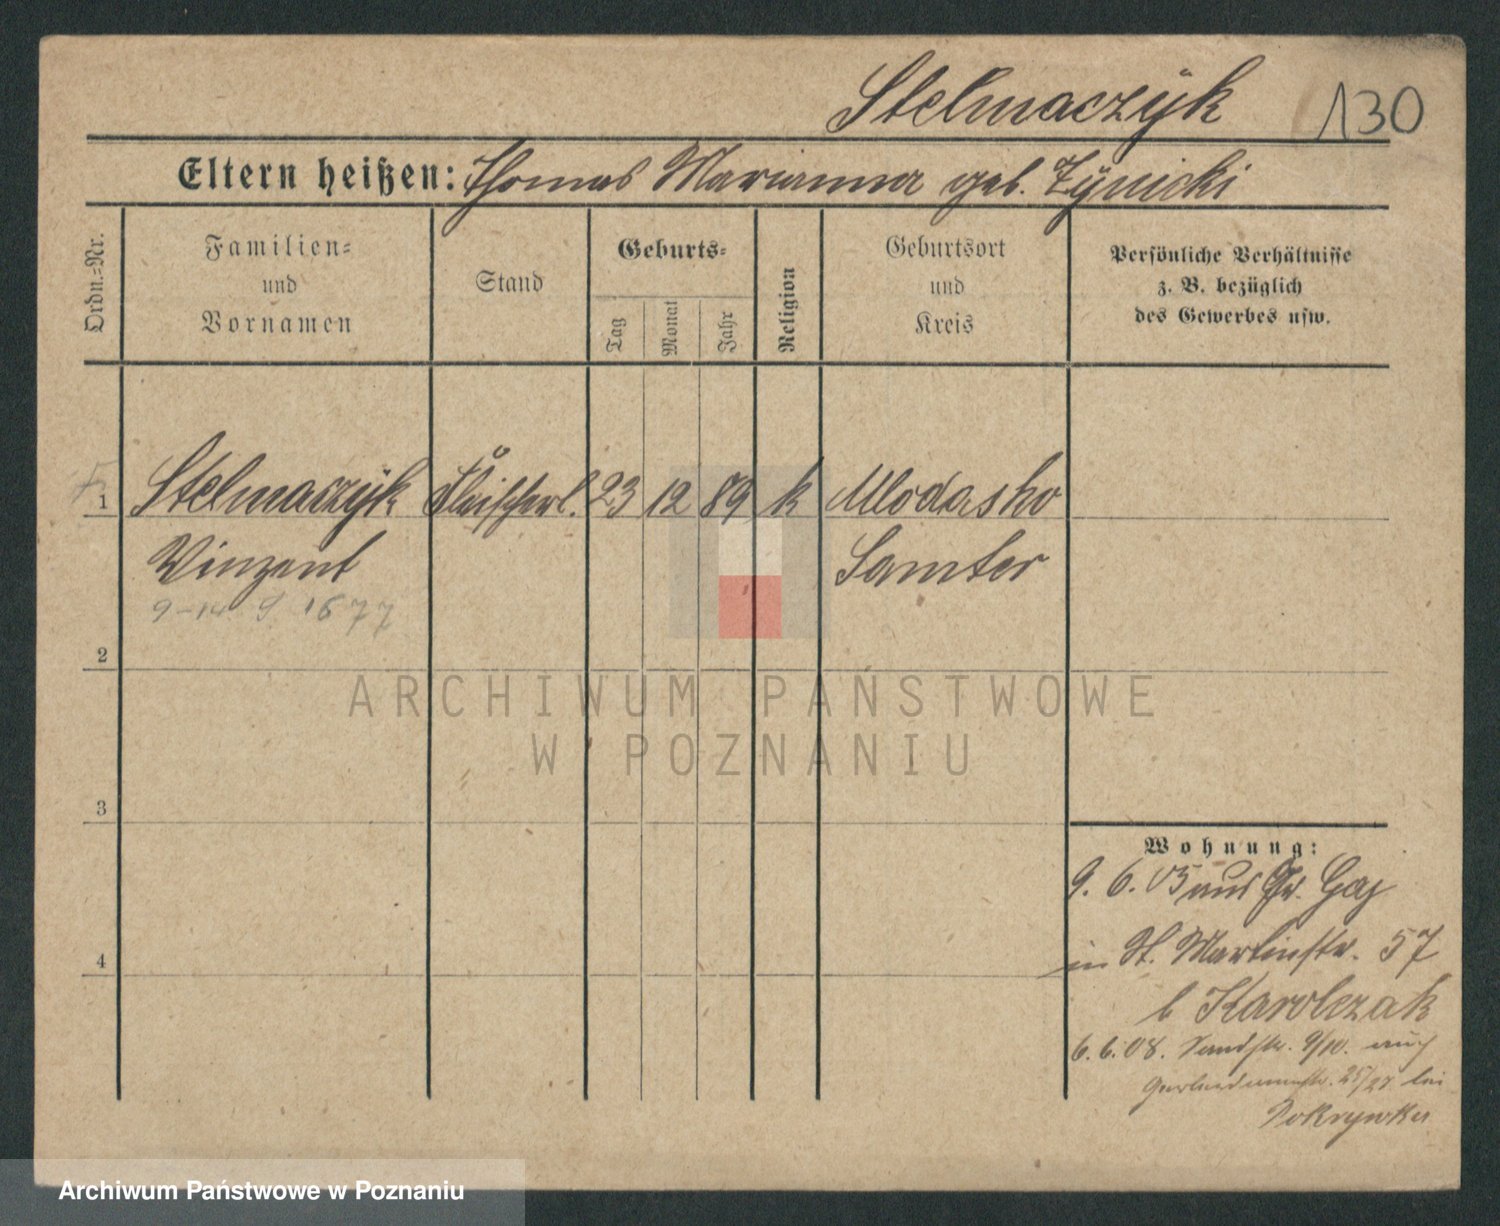 Stelmaczÿk 130
Eltern heißen: Thomas Marianna geb. Zÿnicki
Ordn.=Nr.
Familien=
und
Vornamen
Stand
Geburts=
Tag
Monat
Jahr
Religion
Geburtsort
und
Kreis
Persönliche Verhältnisse
z. B. bezüglich
des Gewerbes usw.
1 Stelmaczÿk Fleischerl. 23 12 89 k Mlodasko
Vinzent Samter
9-14 9 1677
2
ARCHIWUM PAŃSTWOWE
W POZNANIU
3
Wohnung:
9. 6. 05 aus Gr. Gay
4
in St. Martinstr. 57
b Karolczak
6. 6. 08. Sandstr. 9/10. auch
25/27 bei
Archiwum Państwowe w Poznaniu